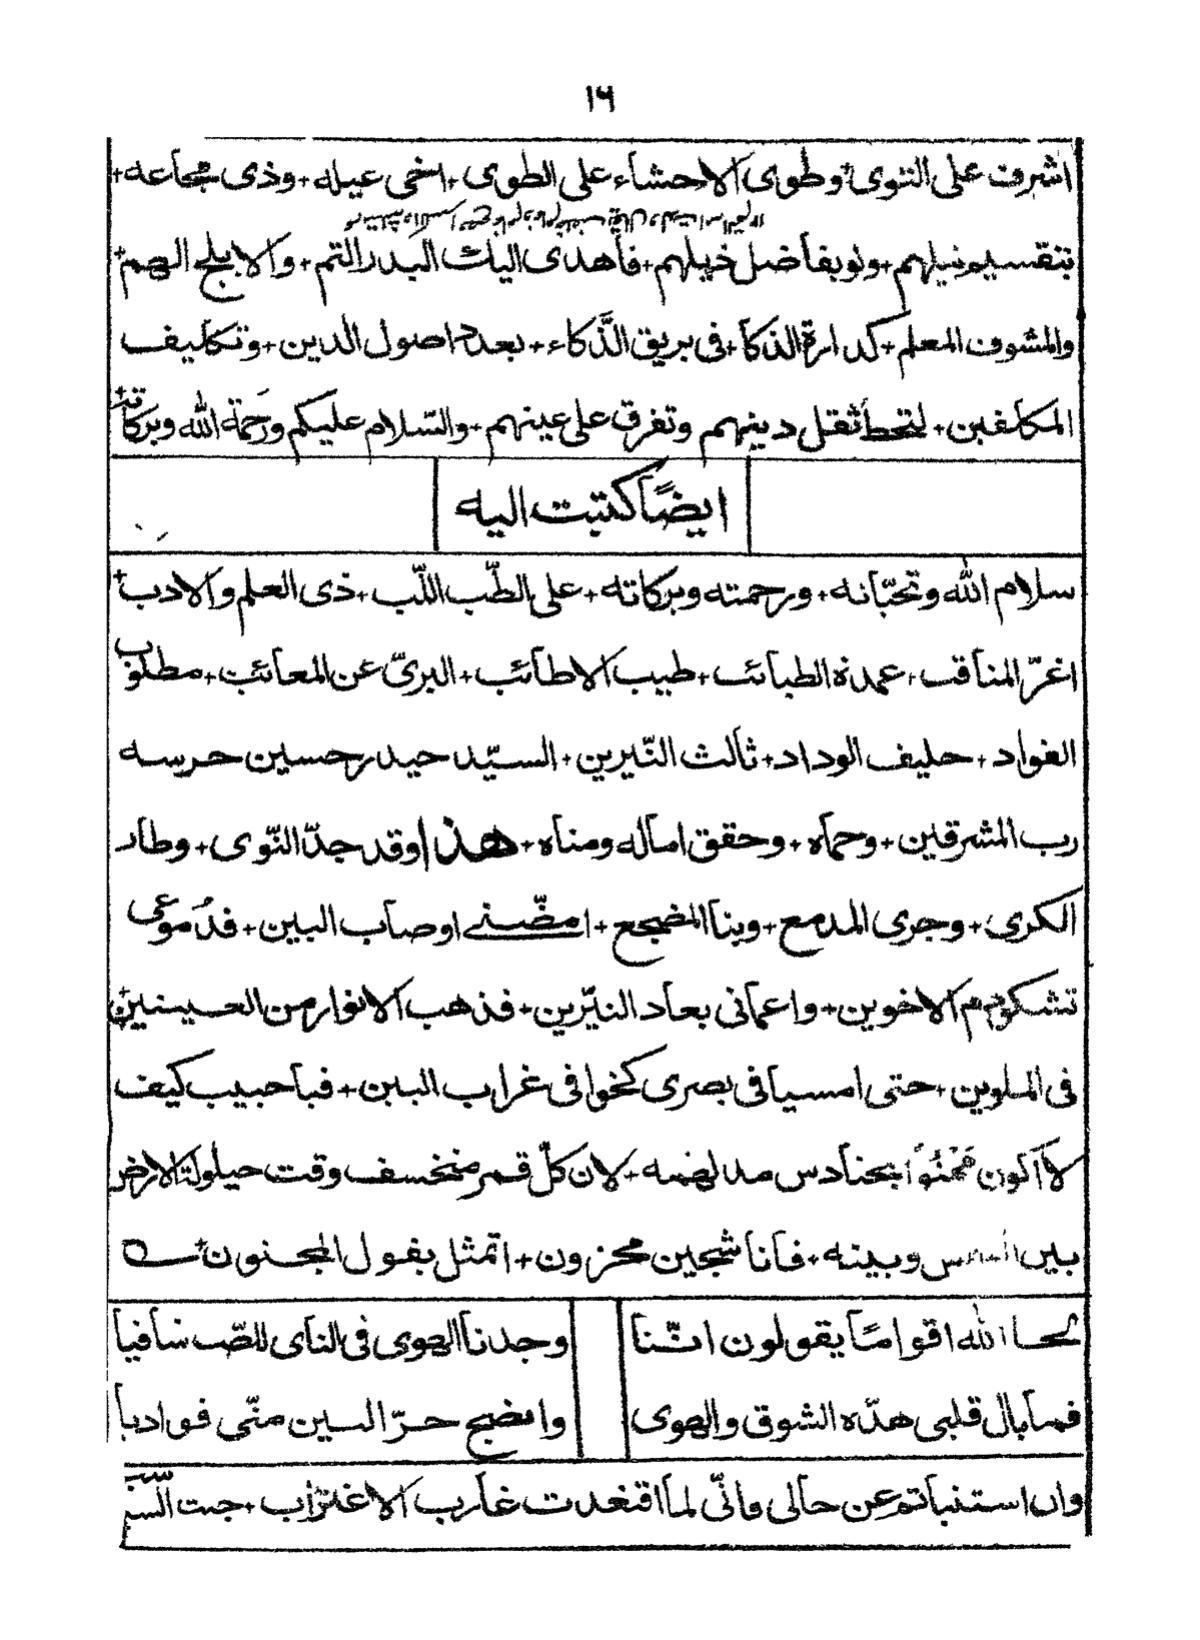 ١٦
اشرف على التوى وطوى الاحشاء على الطوى + اخى عيله + وذى مجاعه +
بتقسيم نيلهم + ولو بفاضل ذيلهم + فأهدى اليك البدر التم + والابلج الهم +
والمشوف المعلم + كدارة الذكا + فى بريق الذَّكاء + بعدد اصول الدين + وتكليف
المكلفين + لتحط ثقل دينهم وتفرق على عينهم + والسّلام عليكم ورَحمة الله وبركاته +
ايضًا كتبت اليه
سلام الله وتحيّاته + ورحمته وبركاته + على الطّب اللّب + ذى العلم والادب +
اغرّ المناقب + عمدة الطبائب + طيب الاطائب + البرىّ عن المعائب + مطلوب
الفواد + حليف الوداد + ثالث النّيرين + السيّد حيدر حسين حرسه
رب المشرقين + وحماه + وحقق اماله ومناه + هذا وقد جدّ النّوى + وطار
الكرى + وجرى المدمع + ونبا المضجع + امضّنى اوصاب البين + فدُموعى
تشكو هم الاخوين + واعمانى بعاد النيّرين + فذهب الانوار من العينين
فى الملوين + حتى امسيا فى بصرى كخوافى غراب البين + فيا حبيب كيف
لا اكون مَمْنُوّاً بحنادس مدلهمه + لان كلّ قمر منخسف وقت حيلولة الارض
بين الشمس وبينه + فانا شجين محزون + اتمثل بقول المجنون +
لحا الله اقوامًا يقولون انّنا وجدنا الهوى فى الناى للصّب شافيا
فما بال قلبى هدّه الشوق والهوى وانضج حرّ البين منّى فواديا
وان استنباتم عن حالى فانّى لما اقتعدت غارب الاغتراب + جبت